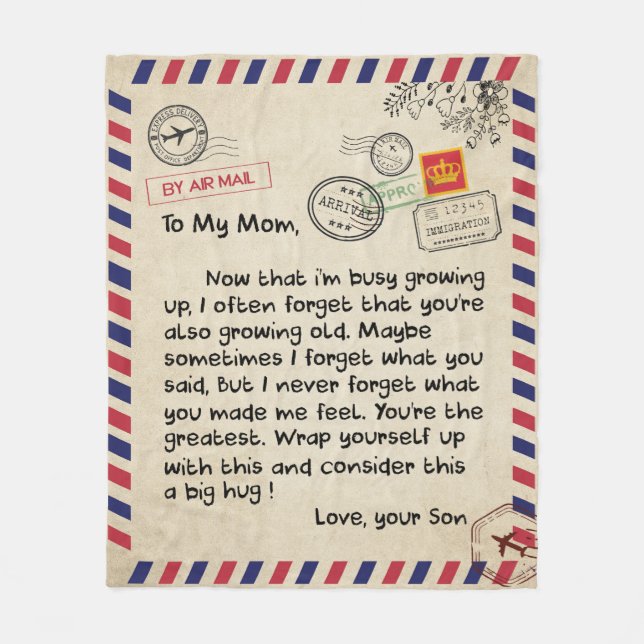 EXPRESS DELIVERY
POST OFFICE DEPARTMENT
BY AIR MAIL
AIR MAIL
APPRO
ARRIVAL
12345
IMMIGRATION
To My Mom,
Now that i'm busy growing
up, I often forget that you're
also growing old. Maybe
sometimes I forget what you
said, But I never forget what
you made me feel. You're the
greatest. Wrap yourself up
with this and consider this
a big hug !
Love, your Son